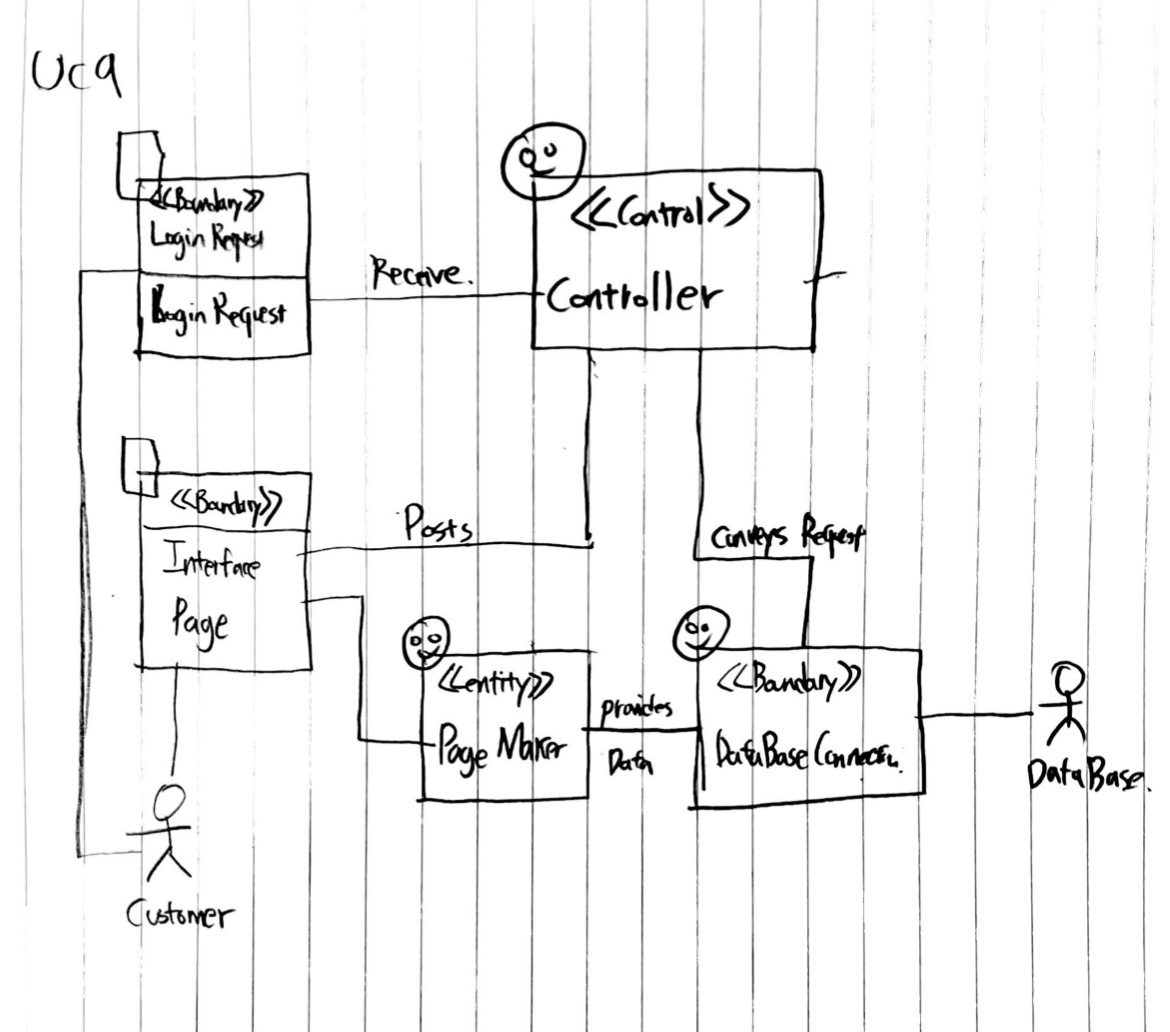 UC9
<<Boundary>>
Login Request
Login Request
Receive.
<<Control>>
Controller
<<Boundary>>
Interface
Page
Posts
Conveys Request
<<entity>>
Page Maker
provides
Data
<<Boundary>>
DataBase Connection.
DataBase.
Customer